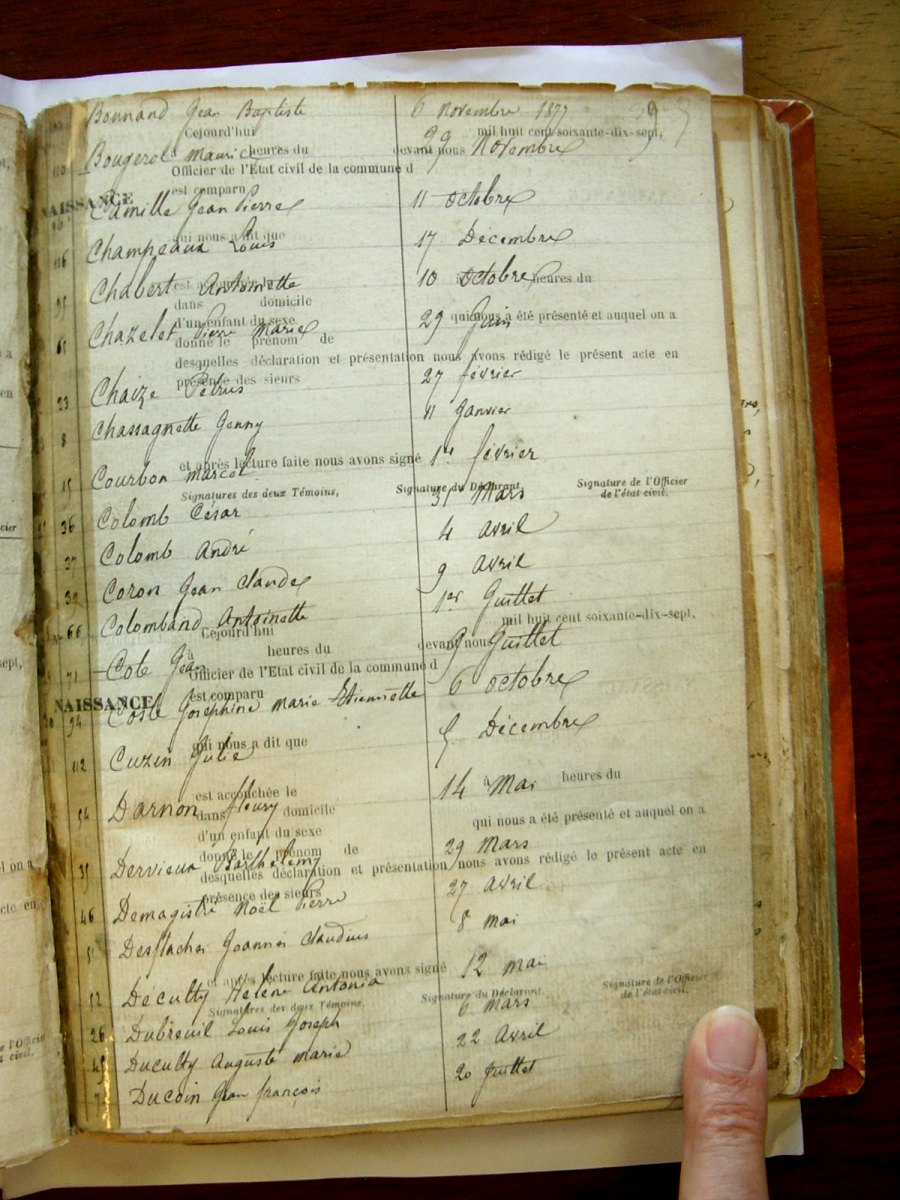 Bonnand Jean Baptiste 6 Novembre 1877
Cejourd'hui mil huit cent soixante-dix-sept,
110 Bougerol Maurice 29 Novembre
à heures du devant nous
Officier de l'Etat civil de la commune d
NAISSANCE est comparu
Camille Jean Pierre 11 Octobre
qui nous a dit que
116 Champeaux Louis 17 Décembre
Chabert Antoinette 10 Octobre
est accouchée le à heures du
dans domicile
95 d'un enfant du sexe qui nous a été présenté et auquel on a
Chazelet Pierre Marie 29 Juin
donné le prénom de
desquelles déclaration et présentation nous avons rédigé le présent acte en
présence des sieurs
23 Chaize Petrus 27 février
8 Chassagnette Jenny 11 Janvier
et après lecture faite nous avons signé
15 Courbon Marcel 1er février
Signatures des deux Témoins, Signature du Déclarant, Signature de l'Officier
de l'état civil,
36 Colomb César 31 Mars
37 Colomb André 4 Avril
39 Coron Jean Claude 9 Avril
66 Colomband Antoinette 1er Juillet
Cejourd'hui mil huit cent soixante-dix-sept,
à heures du devant nous
71 Cote Jean 9 Juillet
Officier de l'Etat civil de la commune d
NAISSANCE est comparu
94 Coste Joséphine Marie Etiennette 6 Octobre
qui nous a dit que
112 Cuzin Julie 5 Décembre
est accouchée le à heures du
54 Darnon fleury 14 Mai
dans domicile
d'un enfant du sexe qui nous a été présenté et auquel on a
donné le prénom de
35 Dervieux Barthélemy 29 Mars
desquelles déclaration et présentation nous avons rédigé le présent acte en
présence des sieurs
46 Demagistri Noël Pierre 27 Avril
51 Desflaches Joannès Claudius 8 mai
et après lecture faite nous avons signé
52 Déculty Hélène Antonia 12 mai
Signatures des deux Témoins, Signature du Déclarant, Signature de l'Officier
de l'état civil,
26 Dubreuil Louis Joseph 6 Mars
45 Duculty Auguste Marie 22 Avril
Ducoin Jean françois 20 Juillet